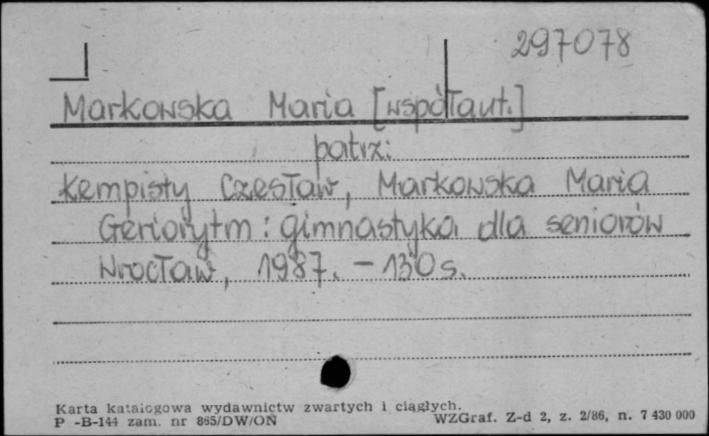 297078
Markowska Maria [współaut.]
patrz:
Kempisty Czesław, Markowska Maria
Geriorytm : gimnastyka dla seniorów
Wrocław, 1987. - 130 s.
Karta katalogowa wydawnictw zwartych i ciągłych.
P -B-144 zam. nr 865/DW/ON WZGraf. Z-d 2, z. 2/86, n. 7 430 000